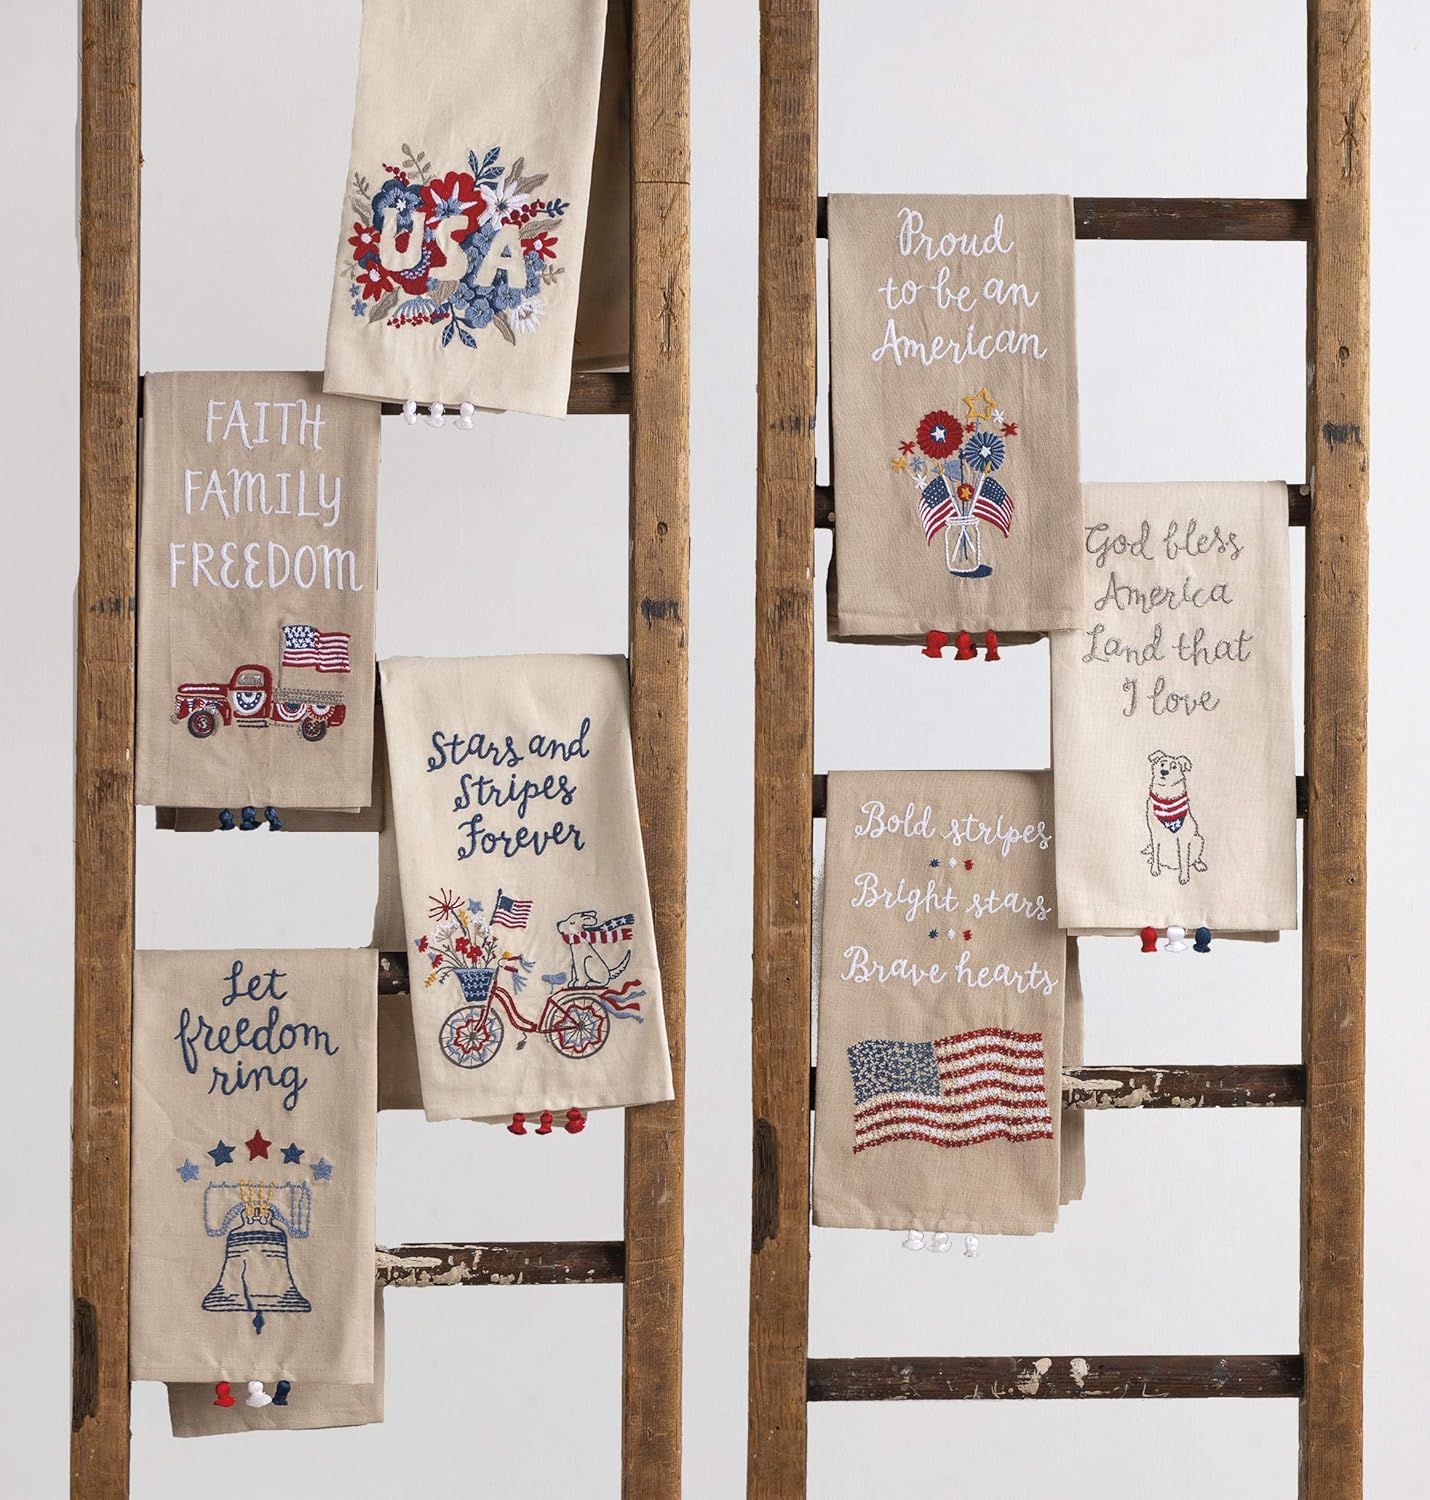 USA
FAITH
FAMILY
FREEDOM
Stars and
Stripes
Forever
Let
freedom
ring
Proud
to be an
American
God bless
America
Land that
I love
Bold stripes
Bright stars
Brave hearts